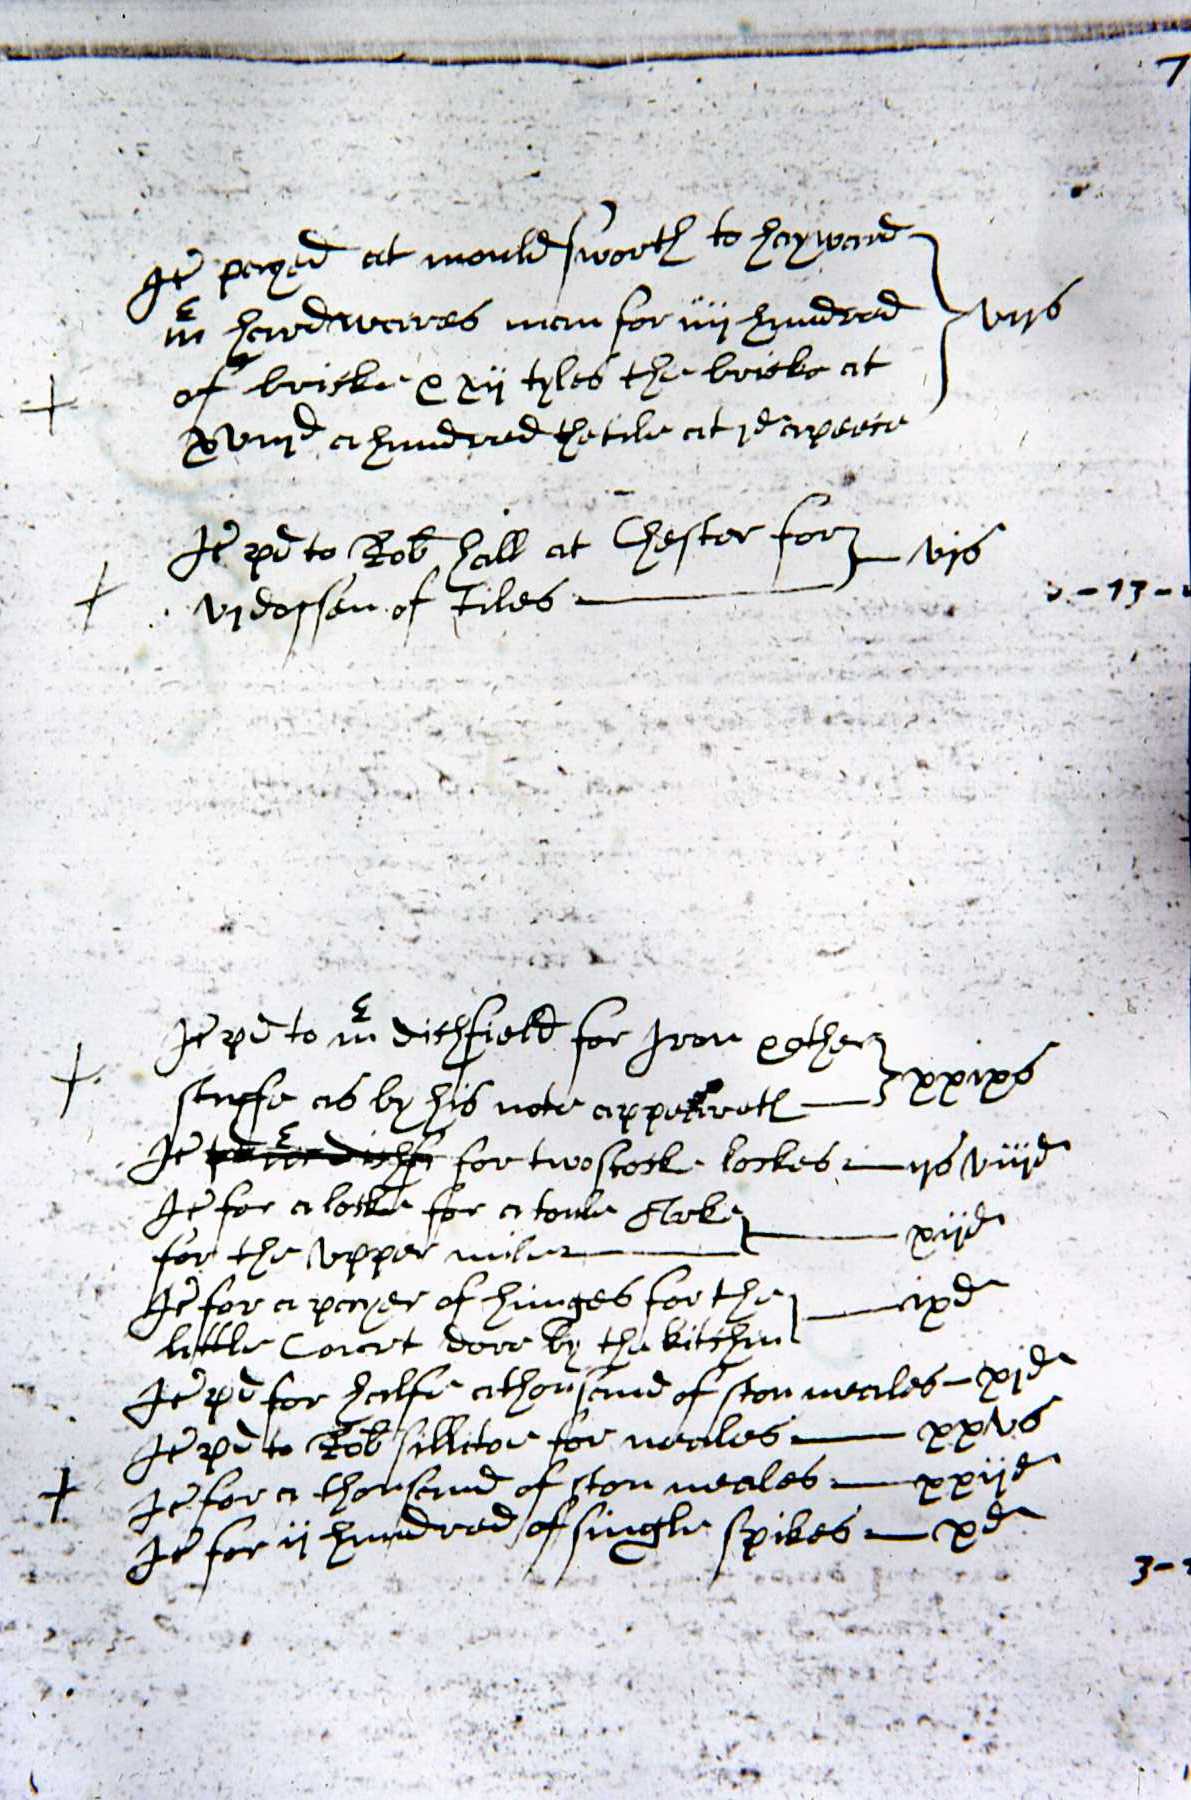 7
It payed at mouldsworth to hayward
mr hardwares man for iiij hundred
of bricke & xij tyles the bricke at
xviijd a hundred the tile at jd a peece
vijs
It pd to Rob hall at Chester for
vj dossen of Tiles
vjs
- 13 -
It pd to mr dichfield for Iron & other
stuffe as by his note appeareth
xxixs
It pd mr dichf for two stock lockes ijs viijd
It for a locke for a toule arke
for the vpper milne
xijd
It for a payer of hinges for the
little Court dore by the kitchin
ixd
It pd for halfe a thousand of ston neales xjd
It pd to Rob sillitoe for neales xxvs
It for a thousand of ston neales xxijd
It for ij hundred of single spikes xd
3 -